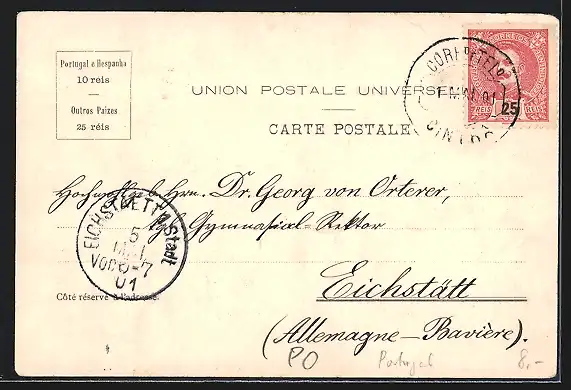 Portugal e Hespanha
10 reis
Outros Paizes
25 réis
UNION POSTALE UNIVERSELLE
CARTE POSTALE
CORREIOS
25
REIS REIS
CORR. E TEL.
1 MAI. 01
CINTRA
Hochwohlgeb. Hrn. Dr. Georg von Orterer,
kgl. Gymnasial-Rektor
Eichstätt
(Allemagne—Bavière).
EICHSTAETT Stadt
5
MAI
Vor. 6-7
01
Côté réservé à l'adresse.
PO Portugal 8,-